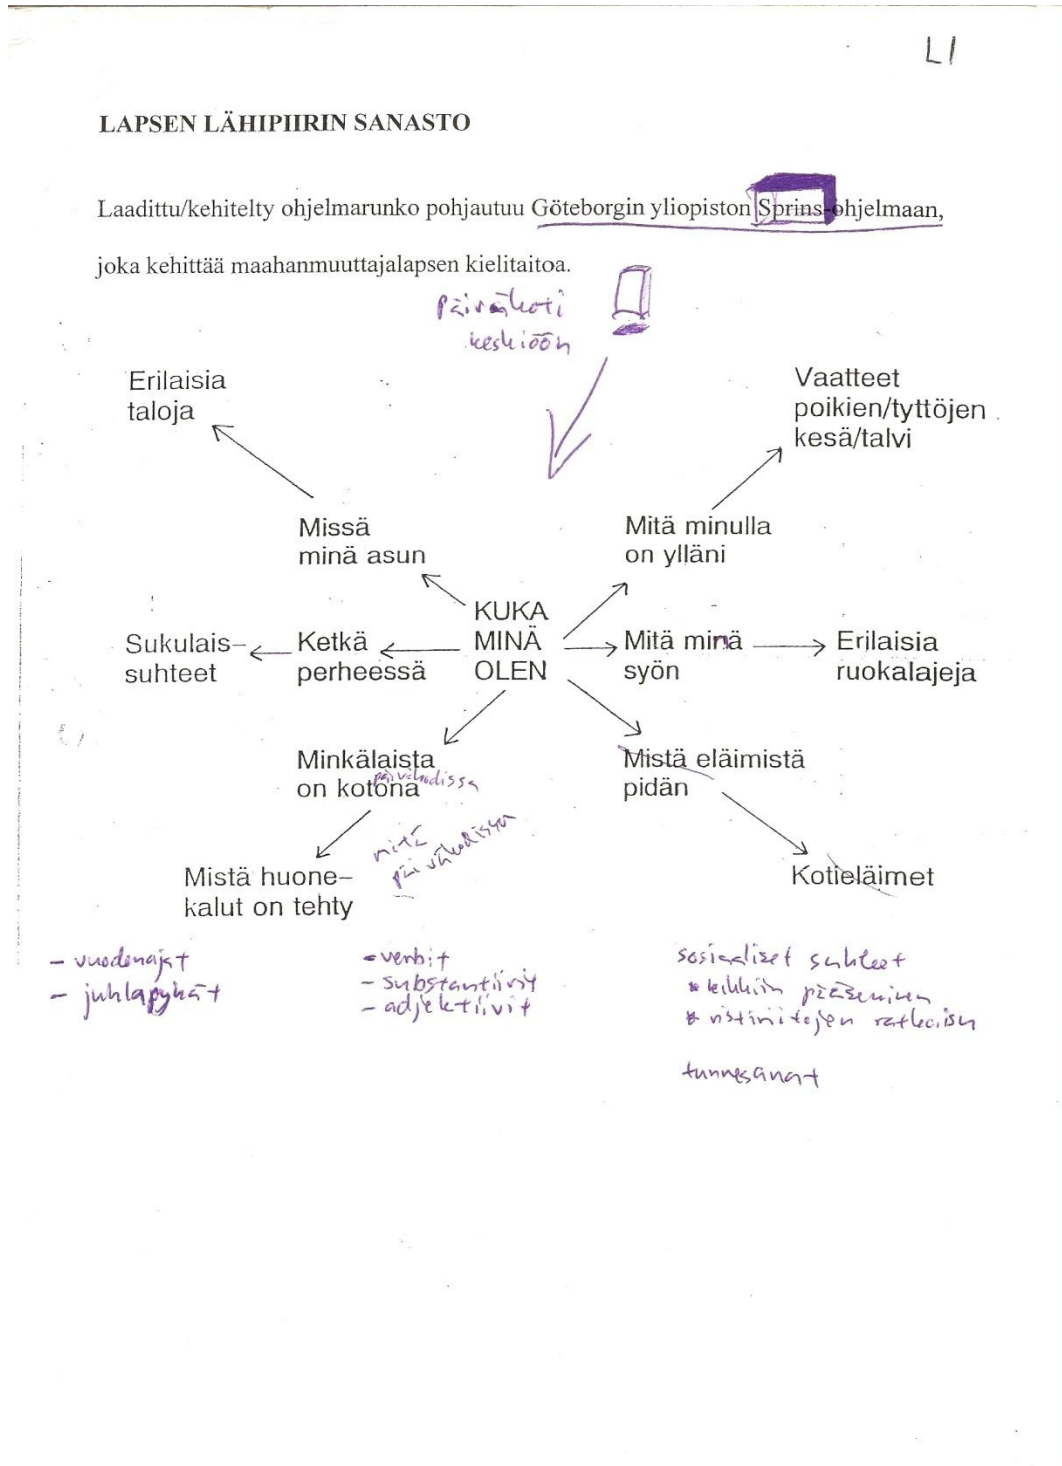 L1
LAPSEN LÄHIPIIRIN SANASTO
Laadittu/kehitelty ohjelmarunko pohjautuu Göteborgin yliopiston Sprins-ohjelmaan,
joka kehittää maahanmuuttajalapsen kielitaitoa.
Päiväkoti
keskiöön
Erilaisia
taloja
Vaatteet
poikien/tyttöjen
kesä/talvi
Missä
minä asun
Mitä minulla
on ylläni
KUKA
MINÄ
OLEN
Sukulais-
suhteet
Ketkä
perheessä
Mitä minä
syön
Erilaisia
ruokalajeja
Minkälaista
on kotona
päiväkodissa
Mistä eläimistä
pidän
mitä
päiväkodissa
Mistä huone-
kalut on tehty
Kotieläimet
- vuodenajat
- juhlapyhät
- verbit
- substantiivit
- adjektiivit
sosiaaliset suhteet
* leikkiin pääseminen
* ristiriitojen ratkaisu
tunnesanat